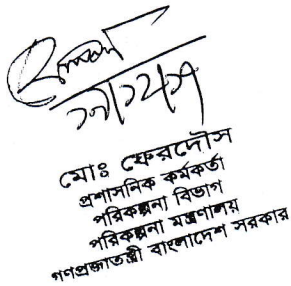 মোঃ ফেরদৌস
প্রশাসনিক কর্মকর্তা
পরিকল্পনা বিভাগ
পরিকল্পনা মন্ত্রণালয়
গণপ্রজাতন্ত্রী বাংলাদেশ সরকার